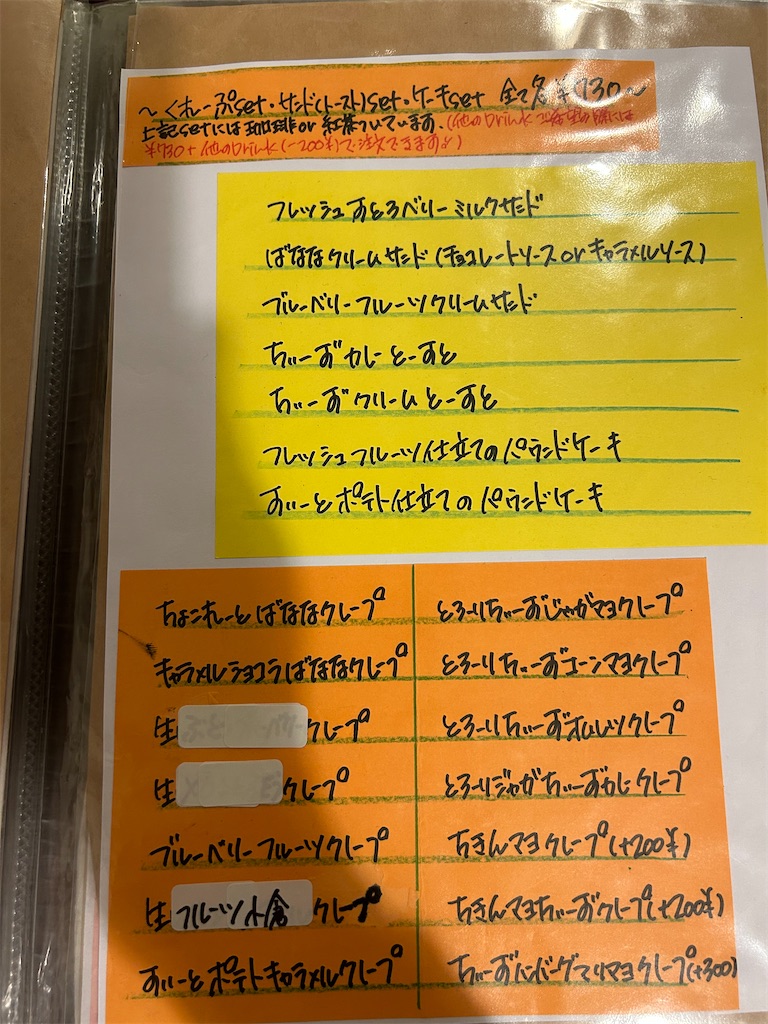 〜くれーぷset・サンド(トースト)set・ケーキset 全て各¥730〜
上記setには珈琲or紅茶ついています。(他のDrink
¥730+他のDrink(-200¥)で注文できますよ)
フレッシュすとろベリーミルクサンド
ばななクリームサンド(チョコレートソースorキャラメルソース)
ブルーベリーフルーツクリームサンド
ちぃーずカレーとーすと
ちぃーずクリームとーすと
フレッシュフルーツ仕立てのパウンドケーキ
すいーとポテト仕立てのパウンドケーキ
ちょこれーとばななクレープ
キャラメルショコラばななクレープ
生 クレープ
生 クレープ
ブルーベリーフルーツクレープ
生フルーツ小倉クレープ
すいーとポテトキャラメルクレープ
とろーりちぃーずじゃがマヨクレープ
とろーりちぃーずコーンマヨクレープ
とろーりちぃーずオムレツクレープ
とろーりジャガちぃーずカレークレープ
ちきんマヨクレープ(+200¥)
ちきんマヨちぃーずクレープ(+200¥)
ちぃーずハンバーグテリマヨクレープ(+300)